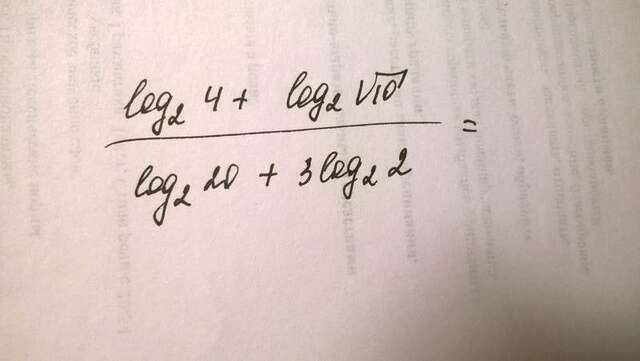 log₂ 4 + log₂ √10
log₂ 20 + 3 log₂ 2 =